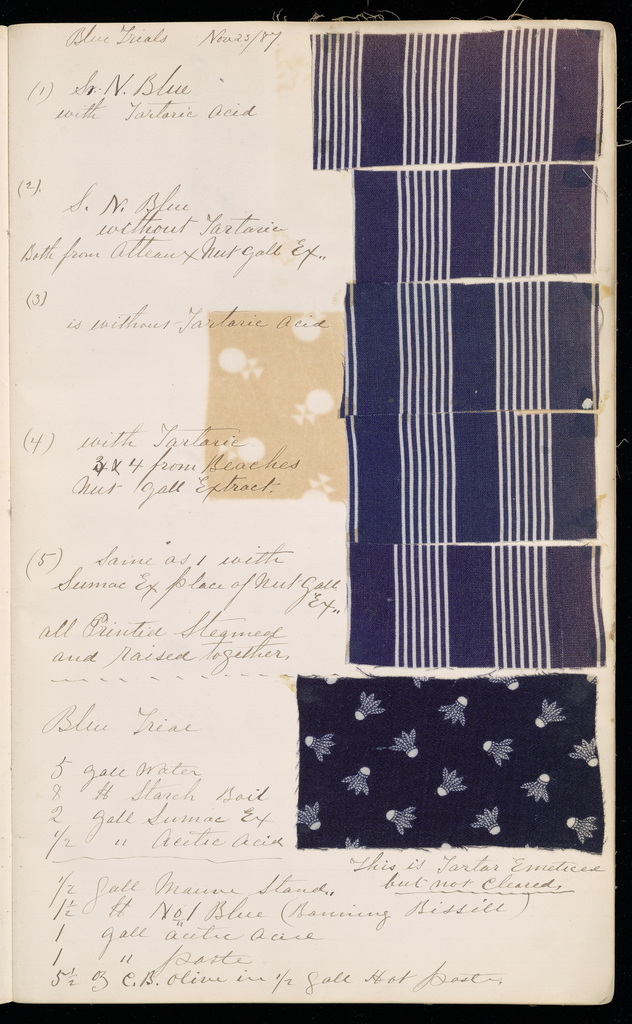 Blue Trials Nov 23/87.
(1) St. N. Blue
with Tartaric Acid
(2).
S. N. Blue
without Tartaric
Both from Atteaux Nut Gall Ex.,
(3)
is without Tartaric Acid
(4) with Tartaric
3 & 4 from Beaches
Nut Gall Extract.
(5) Same as 1 with
Sumac Ex place of Nut Gall
Ex.,
all Printed Steamed
and raised together.
Blue Trial
5 gall Water
8 lb Starch Boil
2 gall Sumac Ex
1/2 " Acetic Acid
This is Tartar Emeticed
but not Cleared.
1/2 gall Mauve Stand.,
1 1/2 lb No 1 Blue (Banning Bissill)
1 gall acetic acid
1 " paste
5 1/2 oz C.B. Olive in 1/2 gall Hot paste.